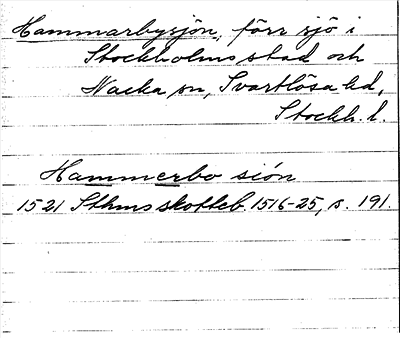 Hammarbysjön, förr sjö i
Stockholms stad och
Nacka sn, Svartlösa hd,
Stockh. l.
Hammerbo siön
1521 Sthms skotteb. 1516-25, s. 191.